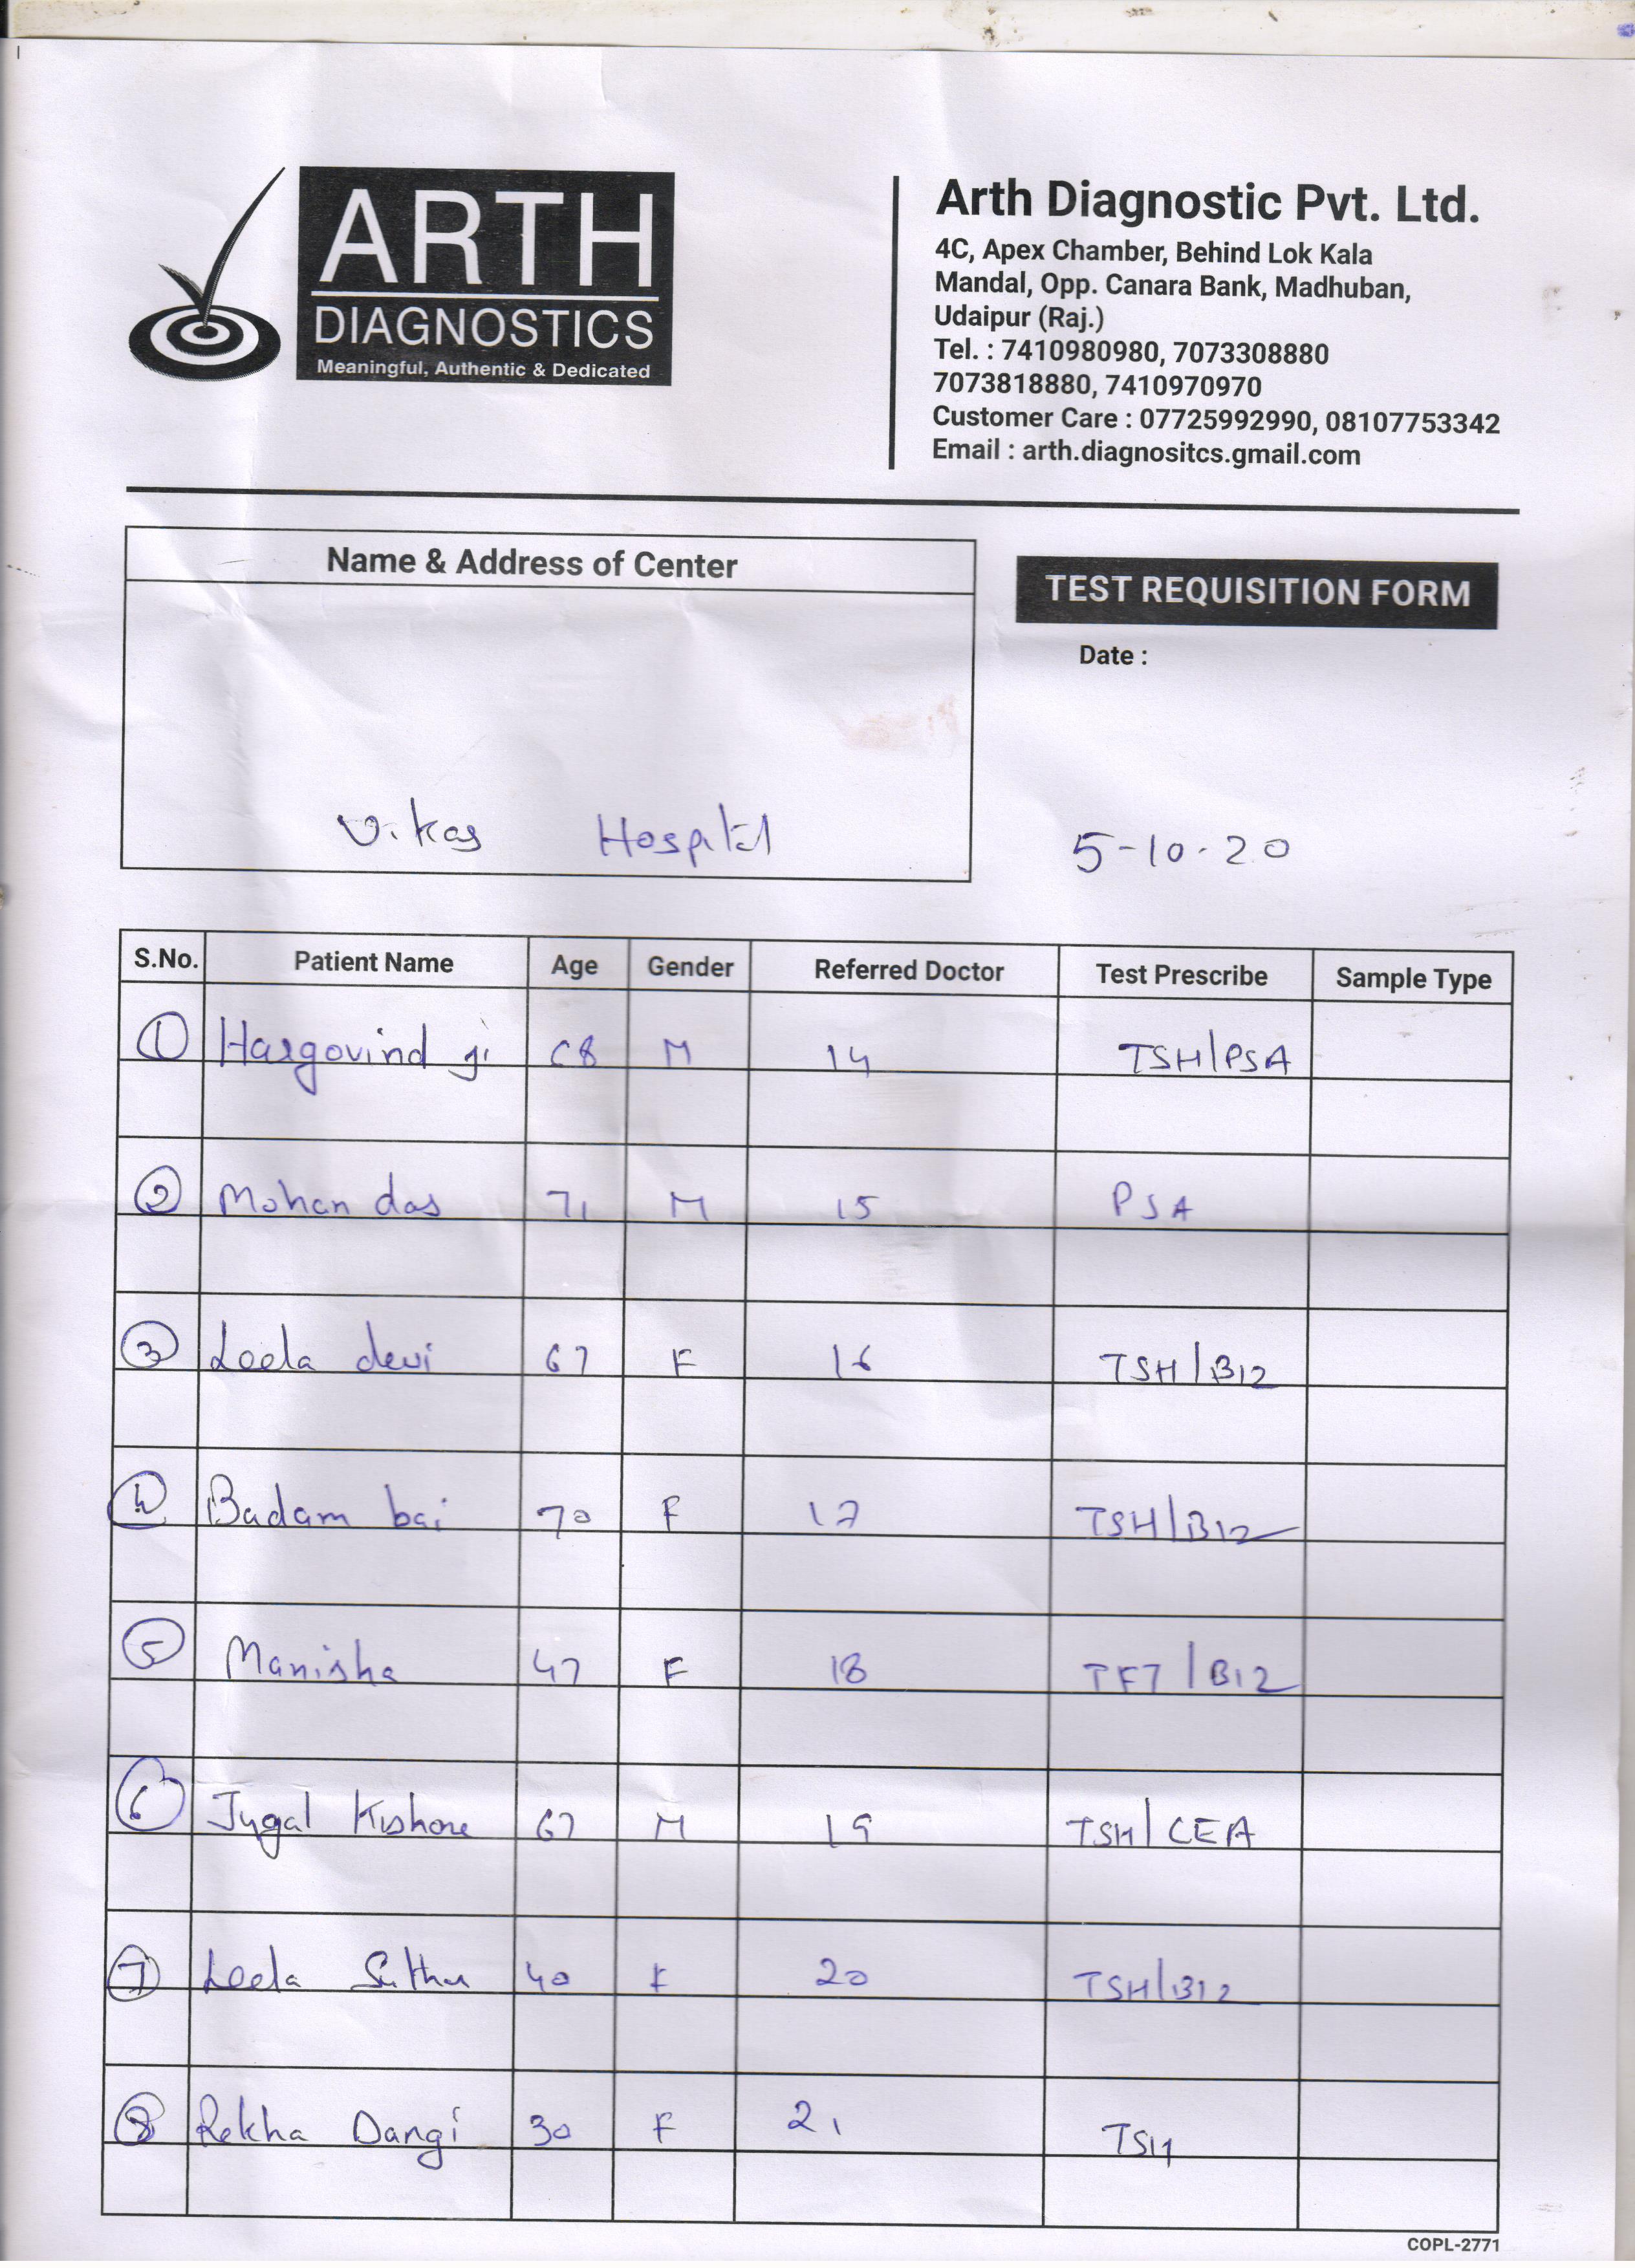 ARTH
DIAGNOSTICS
Meaningful, Authentic & Dedicated
Arth Diagnostic Pvt. Ltd.
4C, Apex Chamber, Behind Lok Kala
Mandal, Opp. Canara Bank, Madhuban,
Udaipur (Raj.)
Tel. : 7410980980, 7073308880
7073818880, 7410970970
Customer Care : 07725992990, 08107753342
Email : arth.diagnositcs.gmail.com
Name & Address of Center
Vikas Hospital
TEST REQUISITION FORM
Date :
5-10-20
S.No. Patient Name Age Gender Referred Doctor Test Prescribe Sample Type
1 Hargovind ji 68 M 14 TSH/PSA
2 Mohan das 71 M 15 PSA
3 Leela devi 67 F 16 TSH/B12
4 Badam bai 70 F 17 TSH/B12
5 Manisha 47 F 18 TFT/B12
6 Jugal Kishore 67 M 19 TSH/CEA
7 Leela 40 F 20 TSH/B12
8 Rekha Dangi 30 F 21 TSH
COPL-2771